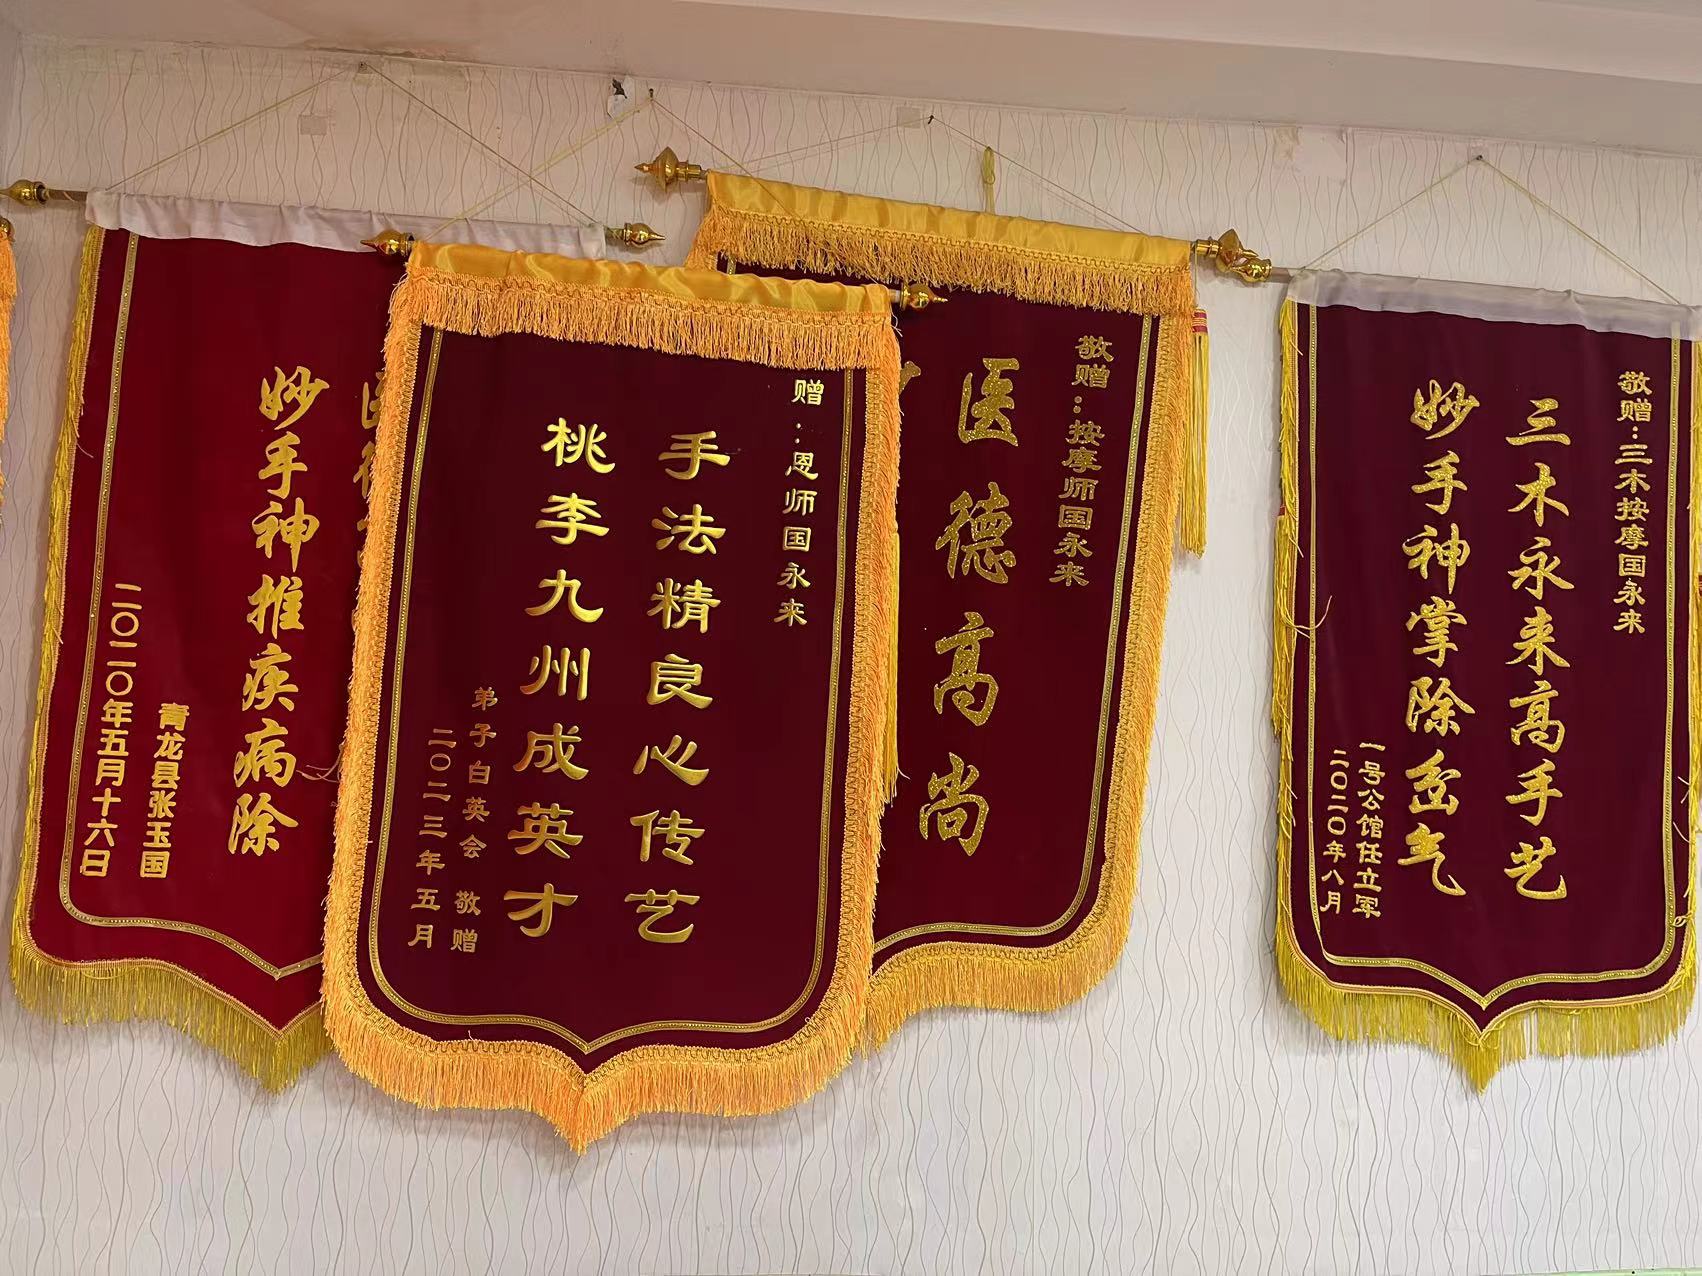 妙手神推疾病除
青龙县张玉国
二〇二〇年五月十六日
赠：恩师国永来
手法精良心传艺
桃李九州成英才
弟子白英会 敬赠
二〇二三年五月
敬赠：按摩师国永来
医德高尚
敬赠：三木按摩国永来
三木永来高手艺
妙手神掌除岔气
一号公馆任立军
二〇二〇年八月